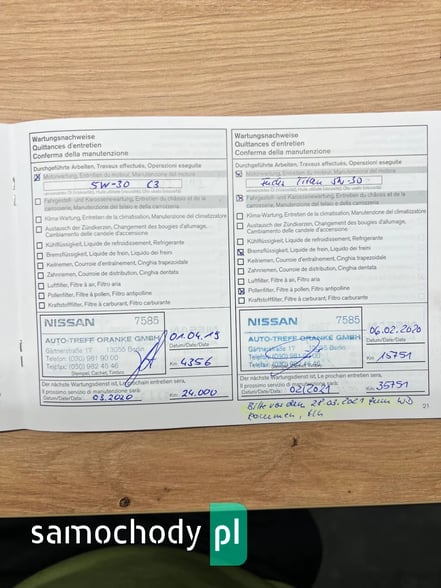 Wartungsnachweise
Quittances d'entretien
Conferma della manutenzione
Durchgeführte Arbeiten, Travaux effectués, Operazioni eseguite
Motorwartung, Entretien du moteur, Manutenzione del motore
5W-30 C3
Fahrgestell- und Karosseriewartung, Entretien du châssis et de la
carrosserie, Manutenzione del telaio e della carrozzeria
Klima-Wartung, Entretien de la climatisation, Manutenzione del climatizzatore
Austausch der Zündkerzen, Changement des bougies d'allumage,
Cambiamento delle candele d'accensione
Kühlflüssigkeit, Liquide de refroidissement, Refrigerante
Bremsflüssigkeit, Liquide de frein, Liquido dei freni
Keilriemen, Courroie d'entraînement, Cinghia trapezoidale
Zahnriemen, Courroie de distribution, Cinghia dentata
Luftfilter, Filtre à air, Filtro aria
Pollenfilter, Filtre à pollen, Filtro antipolline
Kraftstofffilter, Filtre à carburant, Filtro carburante
NISSAN 7585
AUTO-TREFF ORANKE GMBH
Gärtnerstraße 17 13055 Berlin
Telefon: (030) 981 90 00
Telefax: (030) 982 45 46
Stempel, Cachet, Timbro
01.04.19
Datum/Date/Data
Km: 4356
Der nächste Wartungsdienst ist, Le prochain entretien sera,
Il prossimo servizio di manutenzione sarà:
Datum/Date/Data: 03.2020 Km: 24.000
Wartungsnachweise
Quittances d'entretien
Conferma della manutenzione
Durchgeführte Arbeiten, Travaux effectués, Operazioni eseguite
Motorwartung, Entretien du moteur, Manutenzione del motore
Fuchs Titan 5W-30
Fahrgestell- und Karosseriewartung, Entretien du châssis et de la
carrosserie, Manutenzione del telaio e della carrozzeria
Klima-Wartung, Entretien de la climatisation, Manutenzione del climatizzatore
Austausch der Zündkerzen, Changement des bougies d'allumage,
Cambiamento delle candele d'accensione
Kühlflüssigkeit, Liquide de refroidissement, Refrigerante
Bremsflüssigkeit, Liquide de frein, Liquido dei freni
Keilriemen, Courroie d'entraînement, Cinghia trapezoidale
Zahnriemen, Courroie de distribution, Cinghia dentata
Luftfilter, Filtre à air, Filtro aria
Pollenfilter, Filtre à pollen, Filtro antipolline
Kraftstofffilter, Filtre à carburant, Filtro carburante
NISSAN 7585
AUTO-TREFF ORANKE GMBH
Gärtnerstraße 17 13055 Berlin
Telefon: (030) 981
Telefax: (030) 982 45 46
06.02.2020
Datum/Date/Data
Km: 15751
Der nächste Wartungsdienst ist, Le prochain entretien sera,
Il prossimo servizio di manutenzione sarà:
Datum/Date/Data: 02/2021 Km: 35751
Bitte vor dem 28.03.2021 zum WD
kommen,
21
samochody pl